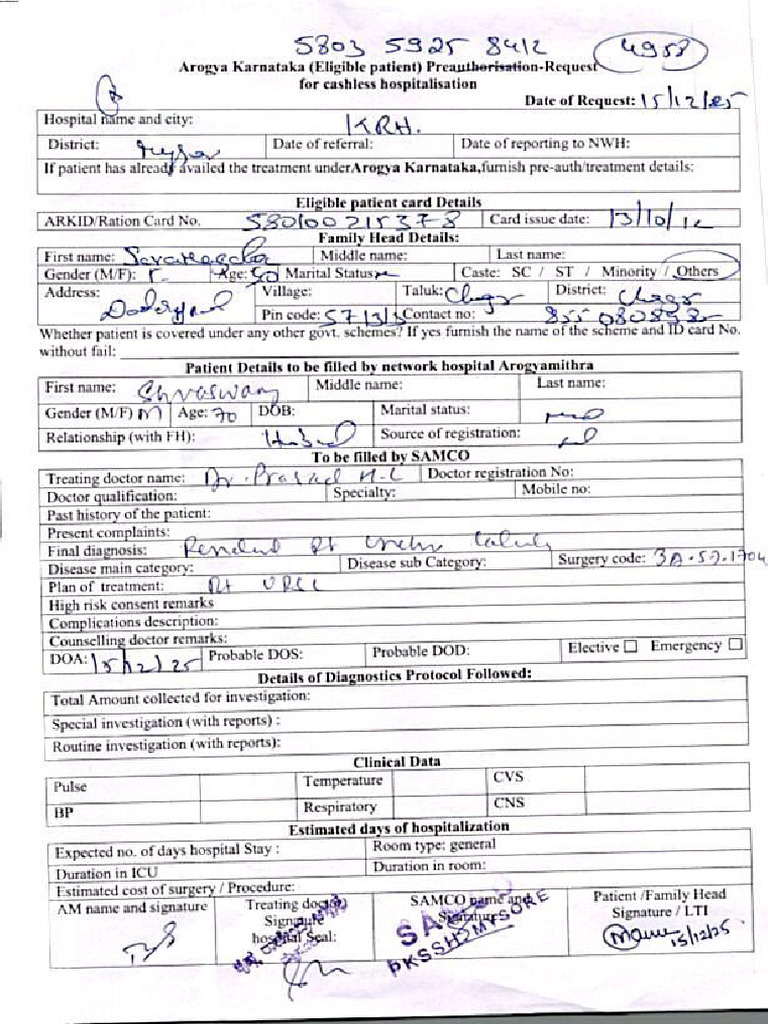 5803 5925 8412 4958
Arogya Karnataka (Eligible patient) Preauthorisation-Request
for cashless hospitalisation
Date of Request: 15/12/25
Hospital name and city: KRH.
District: Date of referral: Date of reporting to NWH:
If patient has already availed the treatment underArogya Karnataka,furnish pre-auth/treatment details:
Eligible patient card Details
ARKID/Ration Card No. 580100215378 Card issue date: 13/10/12
Family Head Details:
First name: Middle name: Last name:
Gender (M/F): F. Age: 50 Marital Status Caste: SC / ST / Minority / Others
Address: Village: Taluk: District:
Pin code: Contact no:
Whether patient is covered under any other govt. schemes? If yes furnish the name of the scheme and ID card No.
without fail:
Patient Details to be filled by network hospital Arogyamithra
First name: Middle name: Last name:
Gender (M/F) M Age: 70 DOB: Marital status:
Relationship (with FH): Source of registration:
To be filled by SAMCO
Treating doctor name: Dr. Prasad H.C Doctor registration No:
Doctor qualification: Specialty: Mobile no:
Past history of the patient:
Present complaints:
Final diagnosis: Residual Rt
Disease main category: Disease sub Category: Surgery code: 3A.S7.1704
Plan of treatment: Rt URSL
High risk consent remarks
Complications description:
Counselling doctor remarks:
DOA: 15/12/25 Probable DOS: Probable DOD: Elective Emergency
Details of Diagnostics Protocol Followed:
Total Amount collected for investigation:
Special investigation (with reports) :
Routine investigation (with reports):
Clinical Data
Pulse Temperature CVS
BP Respiratory CNS
Estimated days of hospitalization
Expected no. of days hospital Stay : Room type: general
Duration in ICU Duration in room:
Estimated cost of surgery / Procedure:
AM name and signature Treating doctor SAMCO name and Patient /Family Head
Signature Signature Signature / LTI
hospital Seal: PKSSH MYSORE 15/12/25